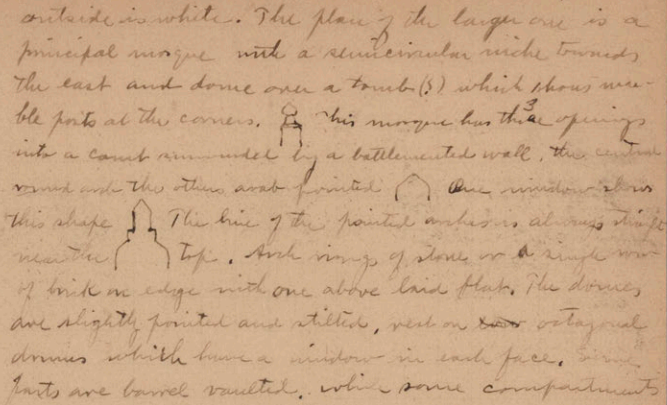 outside is white. The plan of the larger one is a
principal mosque with a semicircular niche towards
the east and dome over a tomb (?) which shows
ble posts at the corners. This mosque has 3 openings
into a court surrounded by a battlemented wall, the central
round and the others arab pointed One window shows
this shape The line of the pointed arches is always straight
near the top. Arch rings of stone or a single row
of brick on edge with one above laid flat. The domes
are slightly pointed and stilted, rest on octagonal
drums which have a window in each face. Some
parts are barrel vaulted, while some compartments